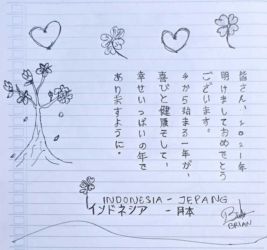 皆さん、2021年
明けましておめでとう
ございます。
今から始まる一年が、
喜びと健康そして、
幸せいっぱいの年で
ありますように。
INDONESIA - JEPANG
インドネシア - 日本
BRIAN